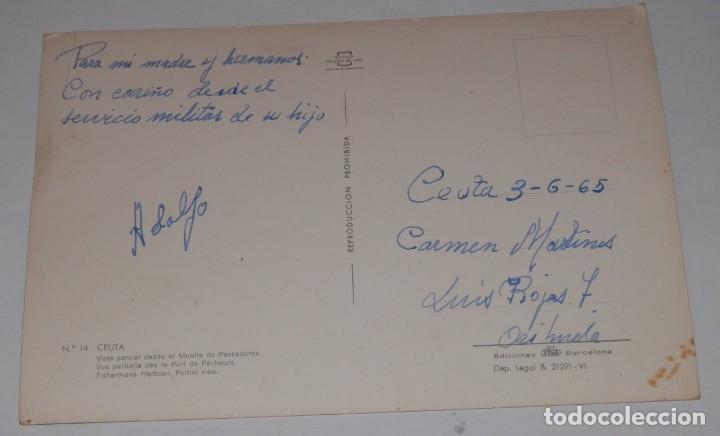 Para mi madre y hermanos.
Con cariño desde el
servicio militar de su hijo
Adolfo
REPRODUCCION PROHIBIDA
Ceuta 3-6-65
Carmen Martines
Luis Rojas 7
Orihuela
N.º 14 CEUTA
Vista parcial desde el Muelle de Pescadores.
Vue partielle dès le Port de Pêcheurs.
Fishermans Harbour, Partiel view.
Ediciones Barcelona
Dep. Legal B. 21291-VI
todocoleccion